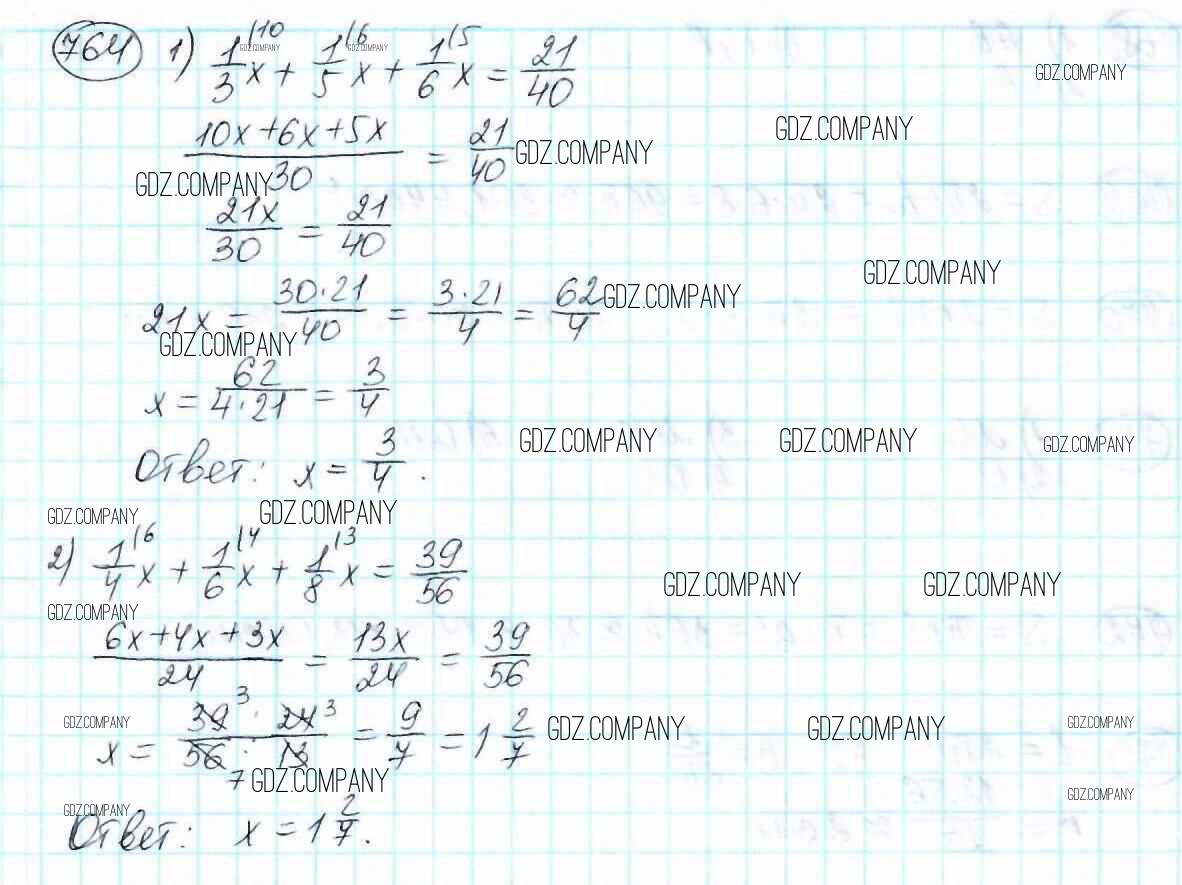 764 1) 1/3 |10 x + 1/5 |6 x + 1/6 |5 x = 21/40
GDZ.COMPANY GDZ.COMPANY GDZ.COMPANY
(10x+6x+5x)/30 = 21/40 GDZ.COMPANY GDZ.COMPANY
GDZ.COMPANY
21x/30 = 21/40
GDZ.COMPANY
21x = 30·21/40 = 3·21/4 = 62/4 GDZ.COMPANY
GDZ.COMPANY
x = 62/4·21 = 3/4
Ответ: x = 3/4. GDZ.COMPANY GDZ.COMPANY GDZ.COMPANY
GDZ.COMPANY GDZ.COMPANY
2) 1/4 |6 x + 1/6 |4 x + 1/8 |3 x = 39/56 GDZ.COMPANY GDZ.COMPANY
GDZ.COMPANY
(6x+4x+3x)/24 = 13x/24 = 39/56
GDZ.COMPANY GDZ.COMPANY GDZ.COMPANY GDZ.COMPANY
x = 39 3 · 24 3 / 56 7 · 13 = 9/7 = 1 2/7
GDZ.COMPANY GDZ.COMPANY
GDZ.COMPANY
Ответ: x = 1 2/7.